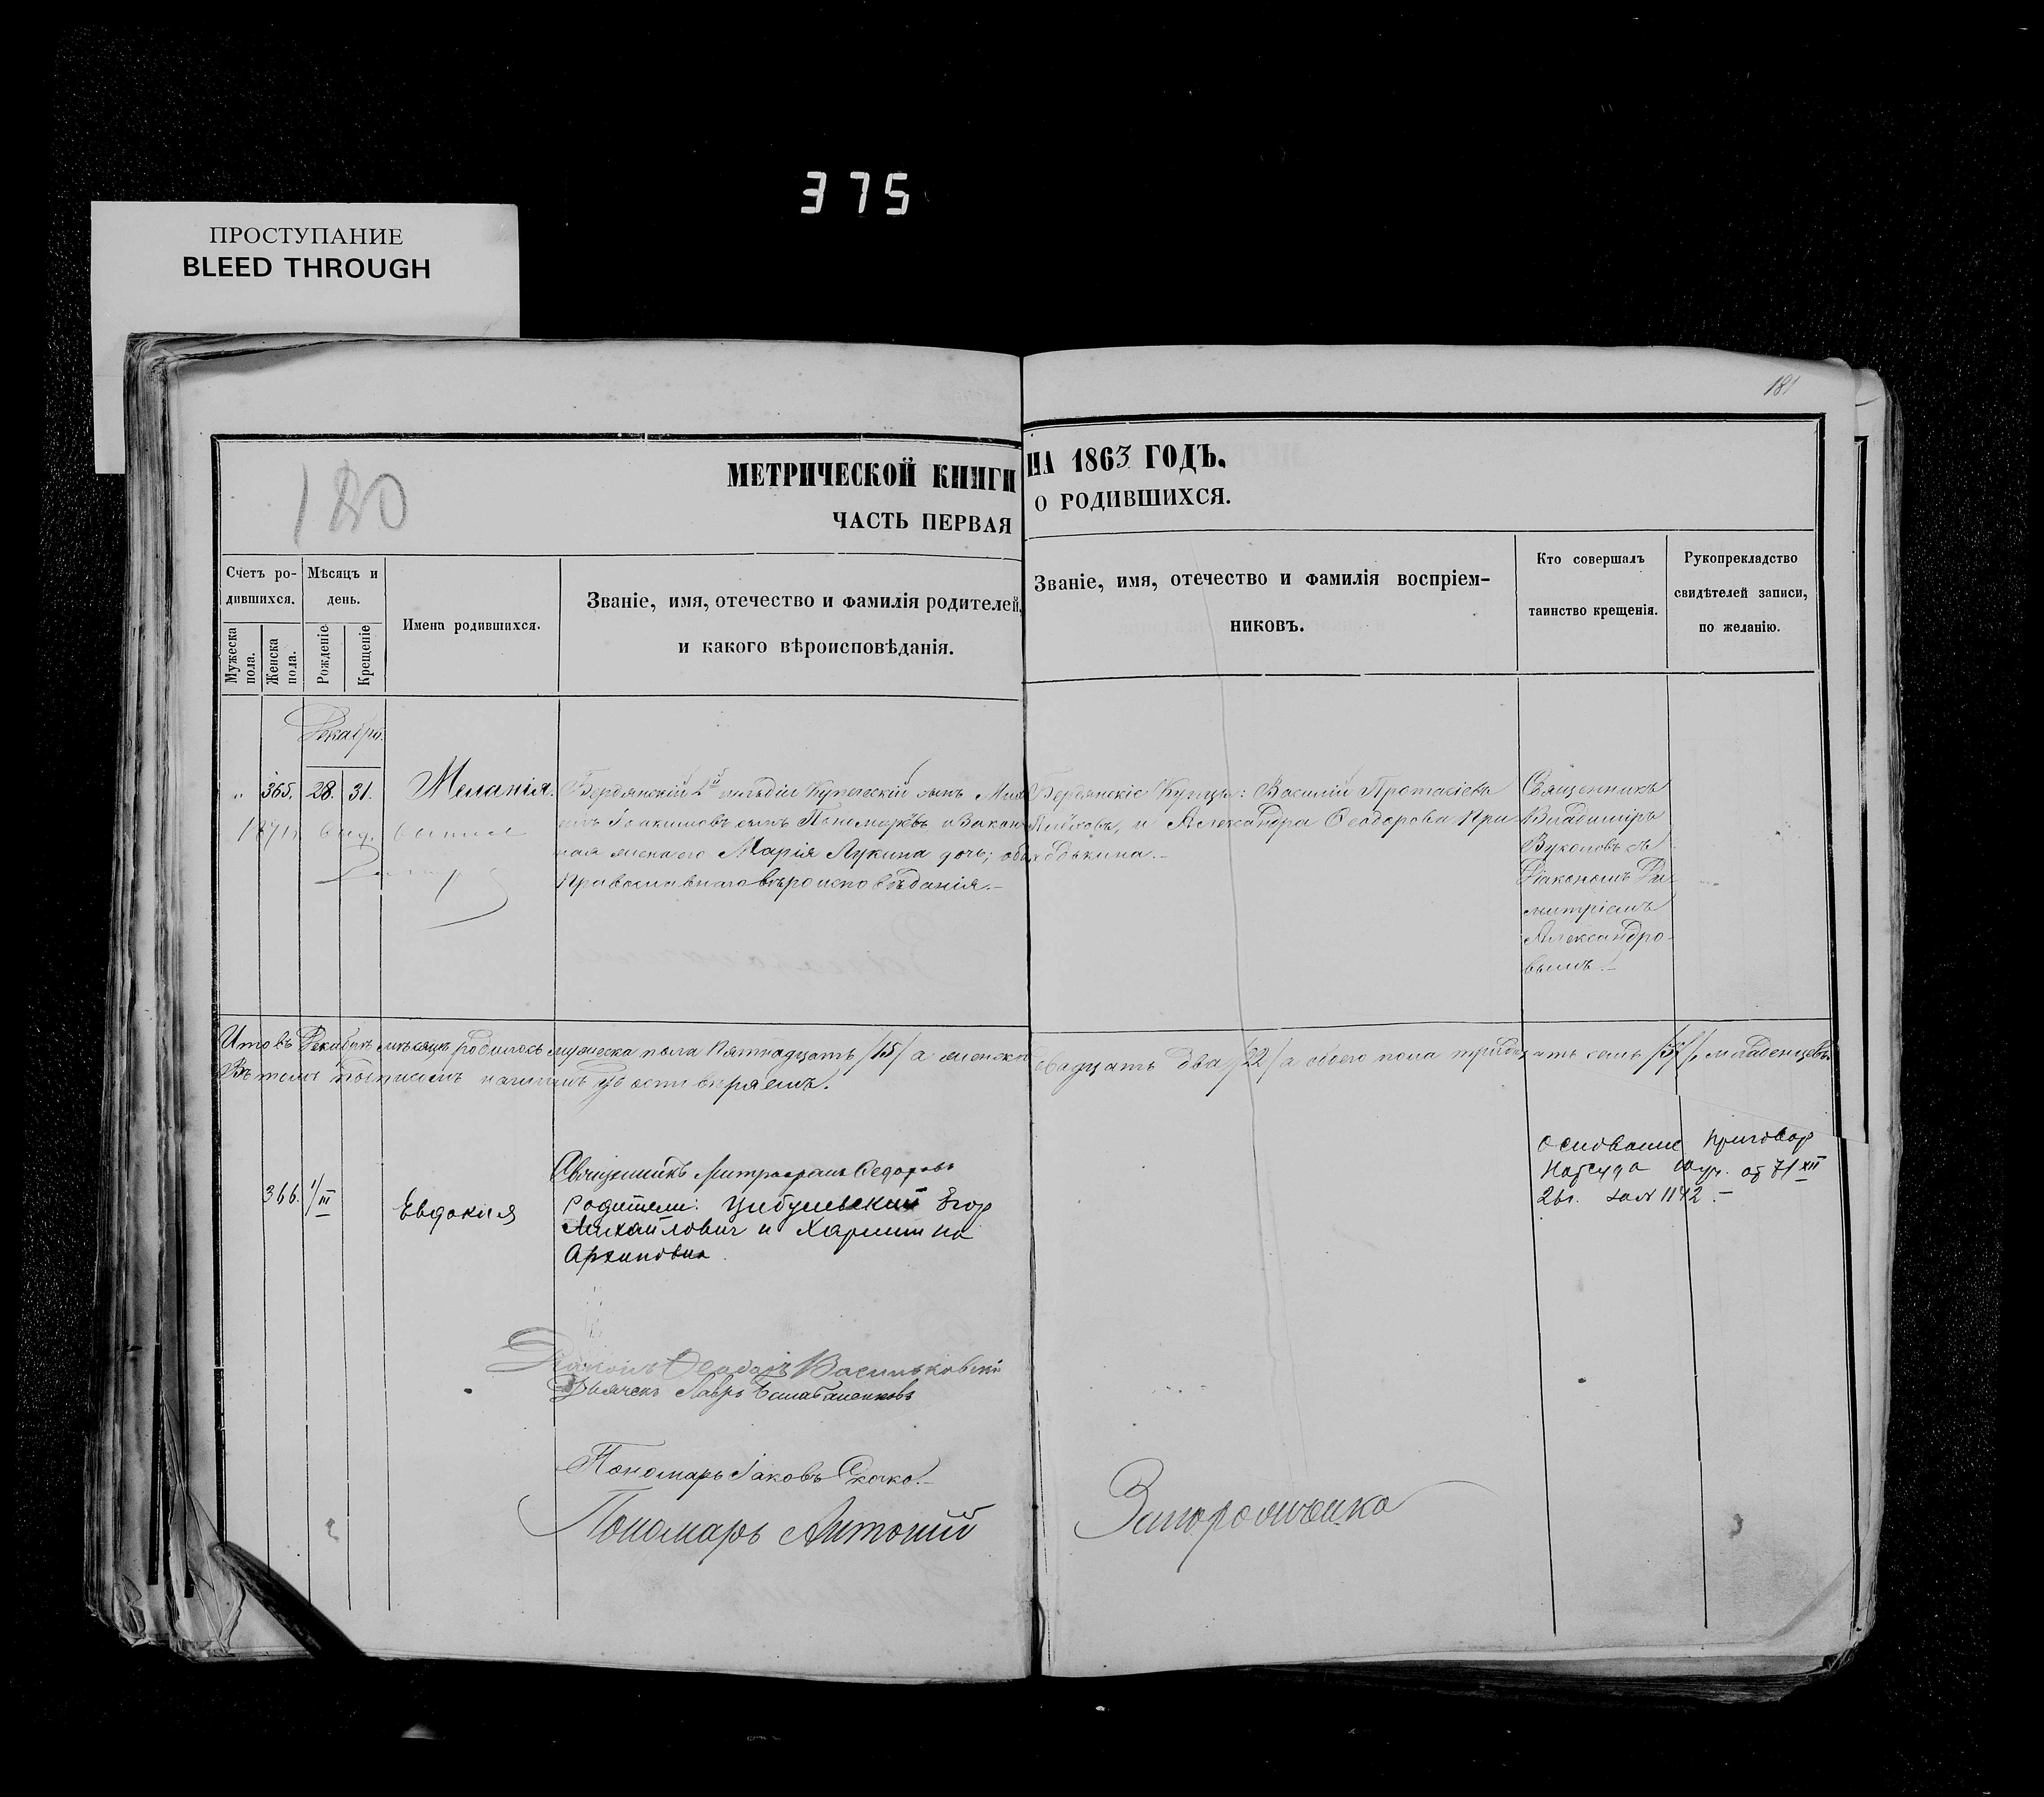 375
ПРОСТУПАНИЕ
BLEED THROUGH
181
180
МЕТРИЧЕСКОЙ КНИГИ НА 1863 ГОДЪ.
ЧАСТЬ ПЕРВАЯ О РОДИВШИХСЯ.
Счетъ ро-
дившихся.
Мужеска пола.
Женска пола.
Мѣсяцъ и
день.
Рожденіе
Крещеніе
Имена родившихся.
Званіе, имя, отечество и фамилія родителей,
и какого вѣроисповѣданія.
Званіе, имя, отечество и фамилія воспріем-
никовъ.
Кто совершалъ
таинство крещенія.
Рукоприкладство
свидѣтелей записи,
по желанію.
Декабрь.
„ 365. 28. 31. Меланія.
Бердянскій 2й гильдіи Купеческій сынъ
Іоакимовъ сынъ Пономарёвъ и Закон
ная жена его Марія Лукина дочь; оба
Православнаго вѣроисповѣданія.–
Бердянскіе Купцы: Василій Протасіевъ
и Александра Ѳеодорова
Священникъ
Владиміръ
Вуколовъ съ
Діакономъ Ди-
митріемъ
Александро-
вымъ.–
Итого въ Декабрѣ мѣсяцѣ родилось мужеска пола Пятнадцать /15/ а женска двадцать два /22/ а обоего пола тридцать семь /37/ младенцевъ.
Въ томъ подписомъ нашимъ удостовѣряемъ.
Священникъ Митрофанъ Ѳедоровъ
366. 1/III Евдокия
Родители: Цибульский Егор
Михайлович и Харитина
Архиповна.
Основание приговор
Нарсуда уч. от 7/XII
26г. за № 1142.–
Діаконъ Ѳеодоръ Васильковскій
Дьячекъ Лавръ
Пономарь Іаковъ Скочко.–
Пономарь Антоній Запорожченко